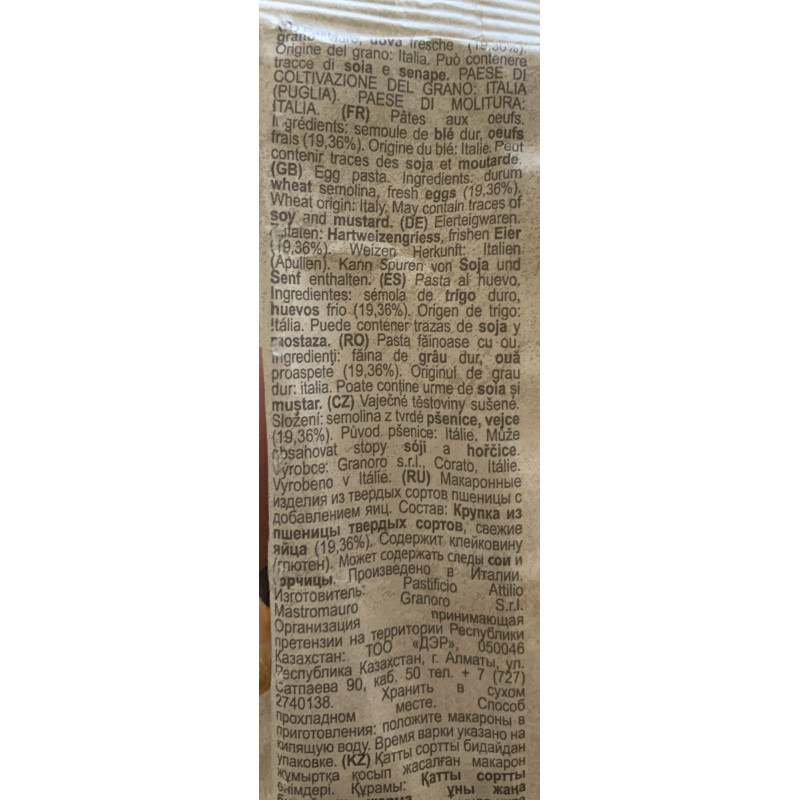 grano duro, uova fresche (19,36%).
Origine del grano: Italia. Può contenere
tracce di soia e senape. PAESE DI
COLTIVAZIONE DEL GRANO: ITALIA
(PUGLIA). PAESE DI MOLITURA:
ITALIA. (FR) Pâtes aux oeufs.
Ingrédients: semoule de blé dur, oeufs
frais (19,36%). Origine du blé: Italie. Peut
contenir traces des soja et moutarde.
(GB) Egg pasta. Ingredients: durum
wheat semolina, fresh eggs (19,36%).
Wheat origin: Italy. May contain traces of
soy and mustard. (DE) Eierteigwaren.
Zutaten: Hartweizengriess, frishen Eier
(19,36%). Weizen Herkunft: Italien
(Apulien). Kann Spuren von Soja und
Senf enthalten. (ES) Pasta al huevo.
Ingredientes: sémola de trigo duro,
huevos frio (19,36%). Origen de trigo:
Itália. Puede contener trazas de soja y
mostaza. (RO) Pasta făinoase cu ou.
Ingredienţi: făina de grâu dur, ouă
proaspete (19,36%). Originul de grau
dur: italia. Poate conţine urme de soia şi
muştar. (CZ) Vaječné těstoviny sušené.
Složení: semolina z tvrdé pšenice, vejce
(19,36%). Původ pšenice: Itálie. Může
obsahovat stopy sóji a hořčice.
Výrobce: Granoro s.r.l., Corato, Itálie.
Vyrobeno v Itálie. (RU) Макаронные
изделия из твердых сортов пшеницы с
добавлением яиц. Состав: Крупка из
пшеницы твердых сортов, свежие
яйца (19,36%). Содержит клейковину
(глютен). Может содержать следы сои и
горчицы. Произведено в Италии.
Изготовитель: Pastificio Attilio
Mastromauro Granoro S.r.l.
Организация принимающая
претензии на территории Республики
Казахстан: ТОО «ДЭР», 050046
Республика Казахстан, г. Алматы, ул.
Сатпаева 90, каб. 50 тел. + 7 (727)
2740138. Хранить в сухом
прохладном месте. Способ
приготовления: положите макароны в
кипящую воду. Время варки указано на
упаковке. (KZ) Қатты сортты бидайдан
жұмыртқа қосып жасалған макарон
өнімдері. Құрамы: Қатты сортты
ұны жаңа